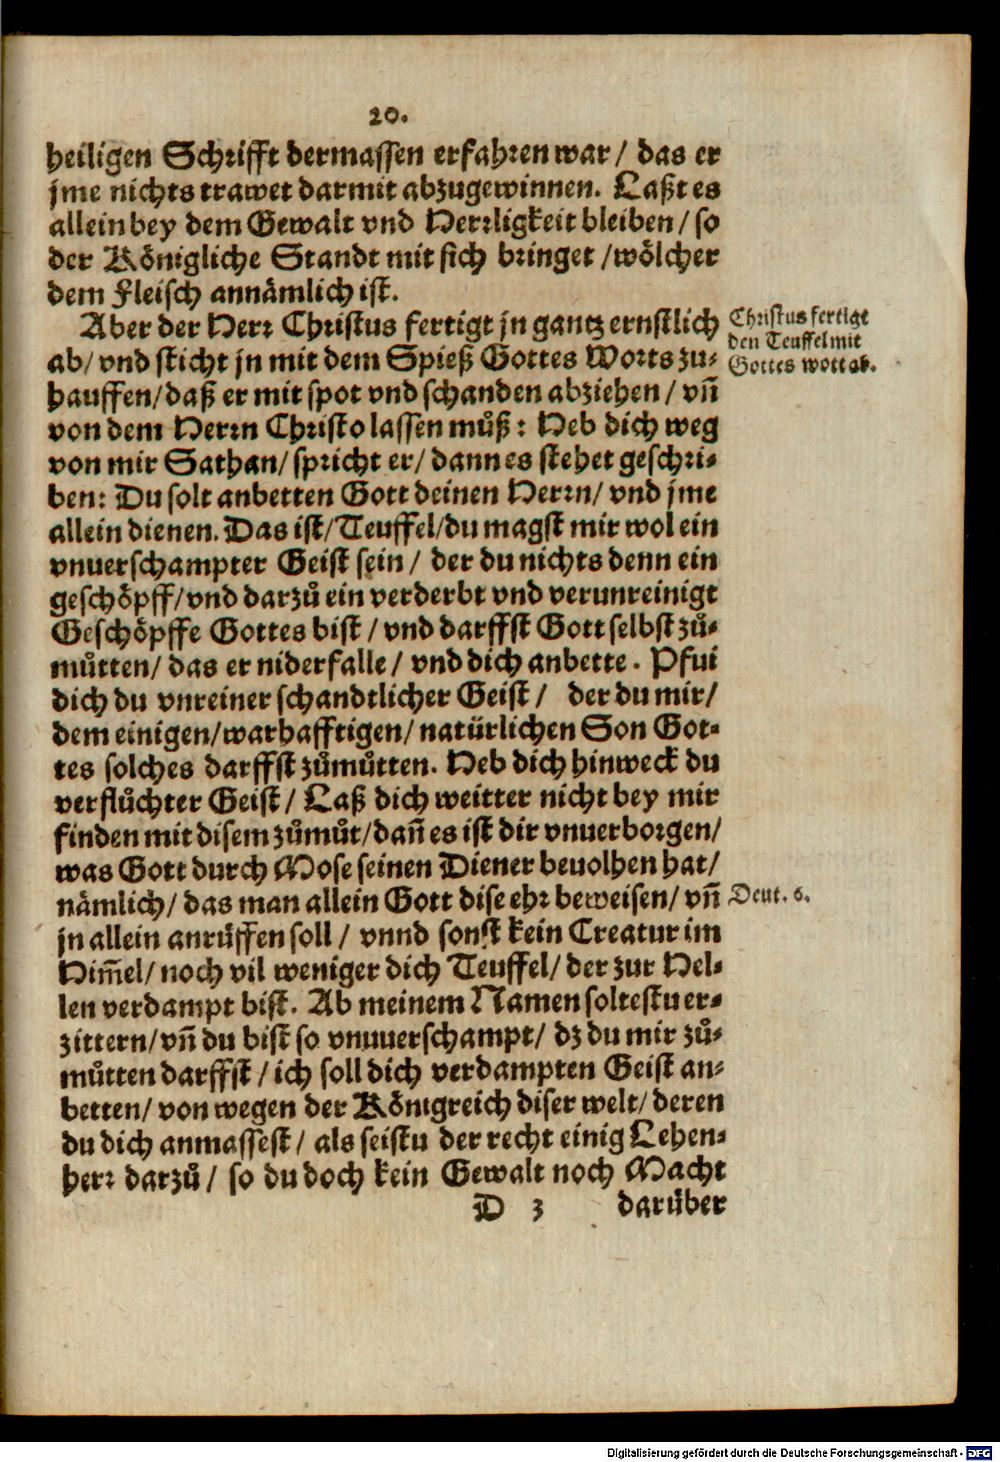 20.
heiligen Schrifft dermassen erfahren war / das er
jme nichts trawet darmit abzugewinnen. Laßt es
allein bey dem Gewalt vnd Herrligkeit bleiben / so
der Königliche Standt mit sich bringet / wölcher
dem Fleisch annämlich ist.
Aber der Herr Christus fertigt jn gantz ernstlich
ab / vnd sticht jn mit dem Spieß Gottes Worts zu-
hauffen / daß er mit spot vnd schanden abziehen / vñ
von dem Herrn Christo lassen můß: Heb dich weg
von mir Sathan / spricht er / dann es stehet geschri-
ben: Du solt anbetten Gott deinen Herrn / vnd jme
allein dienen. Das ist / Teuffel / du magst mir wol ein
vnuerschampter Geist sein / der du nichts denn ein
geschöpff / vnd darzů ein verderbt vnd verunreinigt
Geschöpffe Gottes bist / vnd darffst Gott selbst zů-
můtten / das er niderfalle / vnd dich anbette. Pfui
dich du vnreiner schandtlicher Geist / der du mir /
dem einigen / warhafftigen / natürlichen Son Got-
tes solches darffst zůmůtten. Heb dich hinweck du
verflůchter Geist / Laß dich weitter nicht bey mir
finden mit disem zůmůt / dañ es ist dir vnuerborgen /
was Gott durch Mose seinen Diener beuolhen hat /
nämlich / das man allein Gott dise ehr beweisen / vñ
jn allein anrůffen soll / vnnd sonst kein Creatur im
Him̃el / noch vil weniger dich Teuffel / der zur Hel-
len verdampt bist. Ab meinem Namen soltestu er-
zittern / vñ du bist so vnuuerschampt / dz du mir zů-
můtten darffst / ich soll dich verdampten Geist an-
betten / von wegen der Königreich diser welt / deren
du dich anmassest / als seistu der recht einig Lehen-
herr darzů / so du doch kein Gewalt noch Macht
D 3 darüber
Christus fertigt
den Teuffel mit
Gottes wott ab.
Deut. 6.
Digitalisierung gefördert durch die Deutsche Forschungsgemeinschaft - DFG